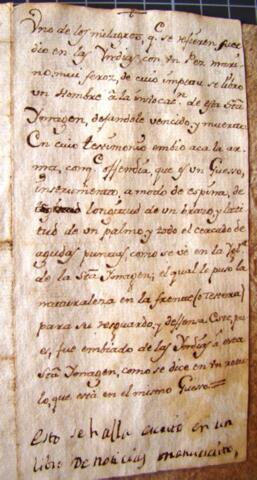 Uno de los milagros, q.e se refieren suce
dio en las Yndias, con un Pez mari
no, mui feroz, de cuio impetu se libro
un Hombre à la invocac.n de esta Sta
Ymagen, dejandole vencido, y muerto.
En cuio testimonio embio acà la ar
ma, con q.e offendia, que es un Guesso,
instrumento, a modo de espina, de
longitud de un brazo, y lati
tud de un palmo, y todo el cercado de
agudas puntas, como se vè en la
de la Sta Ymagen, el qual le puso la
naturaleza en la frente (o Testera)
para su resguardo, y deffensa. Este, pu
es, fue embiado de las Yndias à esta
Sta Ymagen, como se dice en un rotu
lo, que està en el mismo Guesso.
Esto se halla escrito en un
libro de noticias manuscrito,